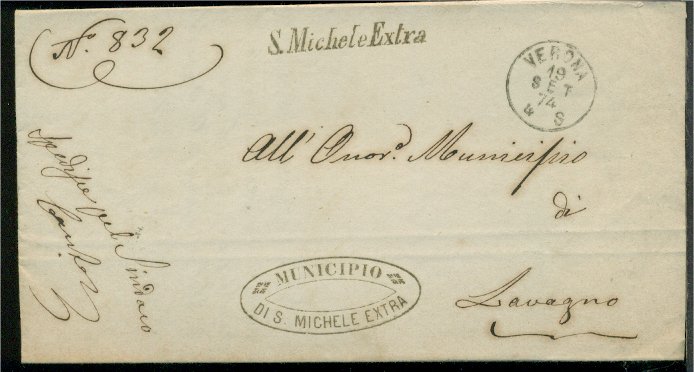 Nº 832
S. Michele Extra
VERONA
19
SET
74
8 S
All' Onor.º Municipio
di
Lavagno
MUNICIPIO
DI S. MICHELE EXTRA
Sindaco